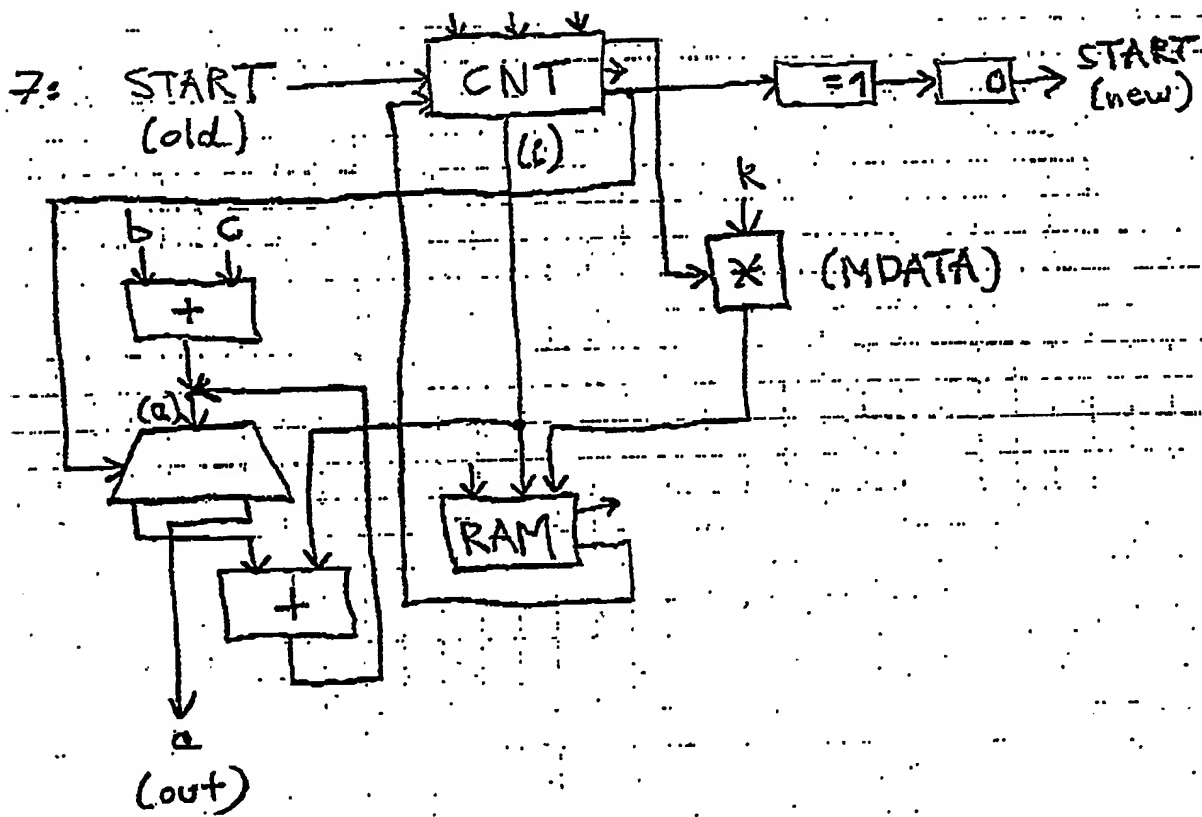 7: START
(old)
CNT
=1
0
START
(new)
(i)
k
*
(MDATA)
b c
+
(a)
RAM
+
a
(out)